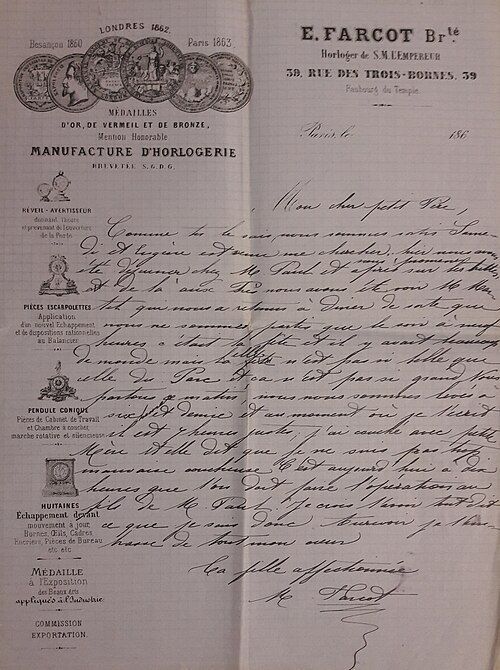 LONDRES 1862.
Besançon 1860
Paris 1863
MÉDAILLES
D'OR, DE VERMEIL ET DE BRONZE,
Mention Honorable
MANUFACTURE D'HORLOGERIE
BREVETÉE S.G.D.G.
E. FARCOT Brté
Horloger de S.M. L'EMPEREUR
39, RUE DES TROIS-BORNES, 39
Faubourg du Temple.
Paris le 186
RÉVEIL-AVERTISSEUR
donnant l'heure
et prévenant de l'ouverture
de la Porte
PIÈCES ESCARPOLETTES
Application
d'un nouvel Échappement
et de dispositions rationnelles
au Balancier
PENDULE CONIQUE
Pièces de Cabinet de Travail
et Chambre à coucher
marche rotative et silencieuse
HUITAINES
Échappement devant
mouvement à jour,
Bornes, Œils, Cadres,
Encriers, Pièces de Bureau
etc. etc.
MÉDAILLE
à l'Exposition
des Beaux Arts
appliqués à l'Industrie.
COMMISSION
EXPORTATION.
Mon cher petit Père,
Comme tu le sais, nous sommes
est venue me chercher, hier nous avons
été déjeuner chez M. Paul et après sur les
et de là nous avons été voir M.
qui nous a retenus à dîner de sorte que
nous ne sommes partis que le soir à
heures c'était la fête et il y avait beaucoup
de monde mais la n'est pas si belle que
celle du Parc et ce n'est pas si grand
ce matin nous nous sommes levés à
six et demie et au moment où je t'écris
il est 7 heures j'ai couché avec petite
Mère et elle dit que je ne suis pas trop
mauvaise coucheuse C'est aujourd'hui à dix
heures que l'on doit faire l'opération au
de M. Paul, je crois t'avoir tout dit
ce que je sais donc
de tout mon cœur
Ta fille affectionnée
M Farcot